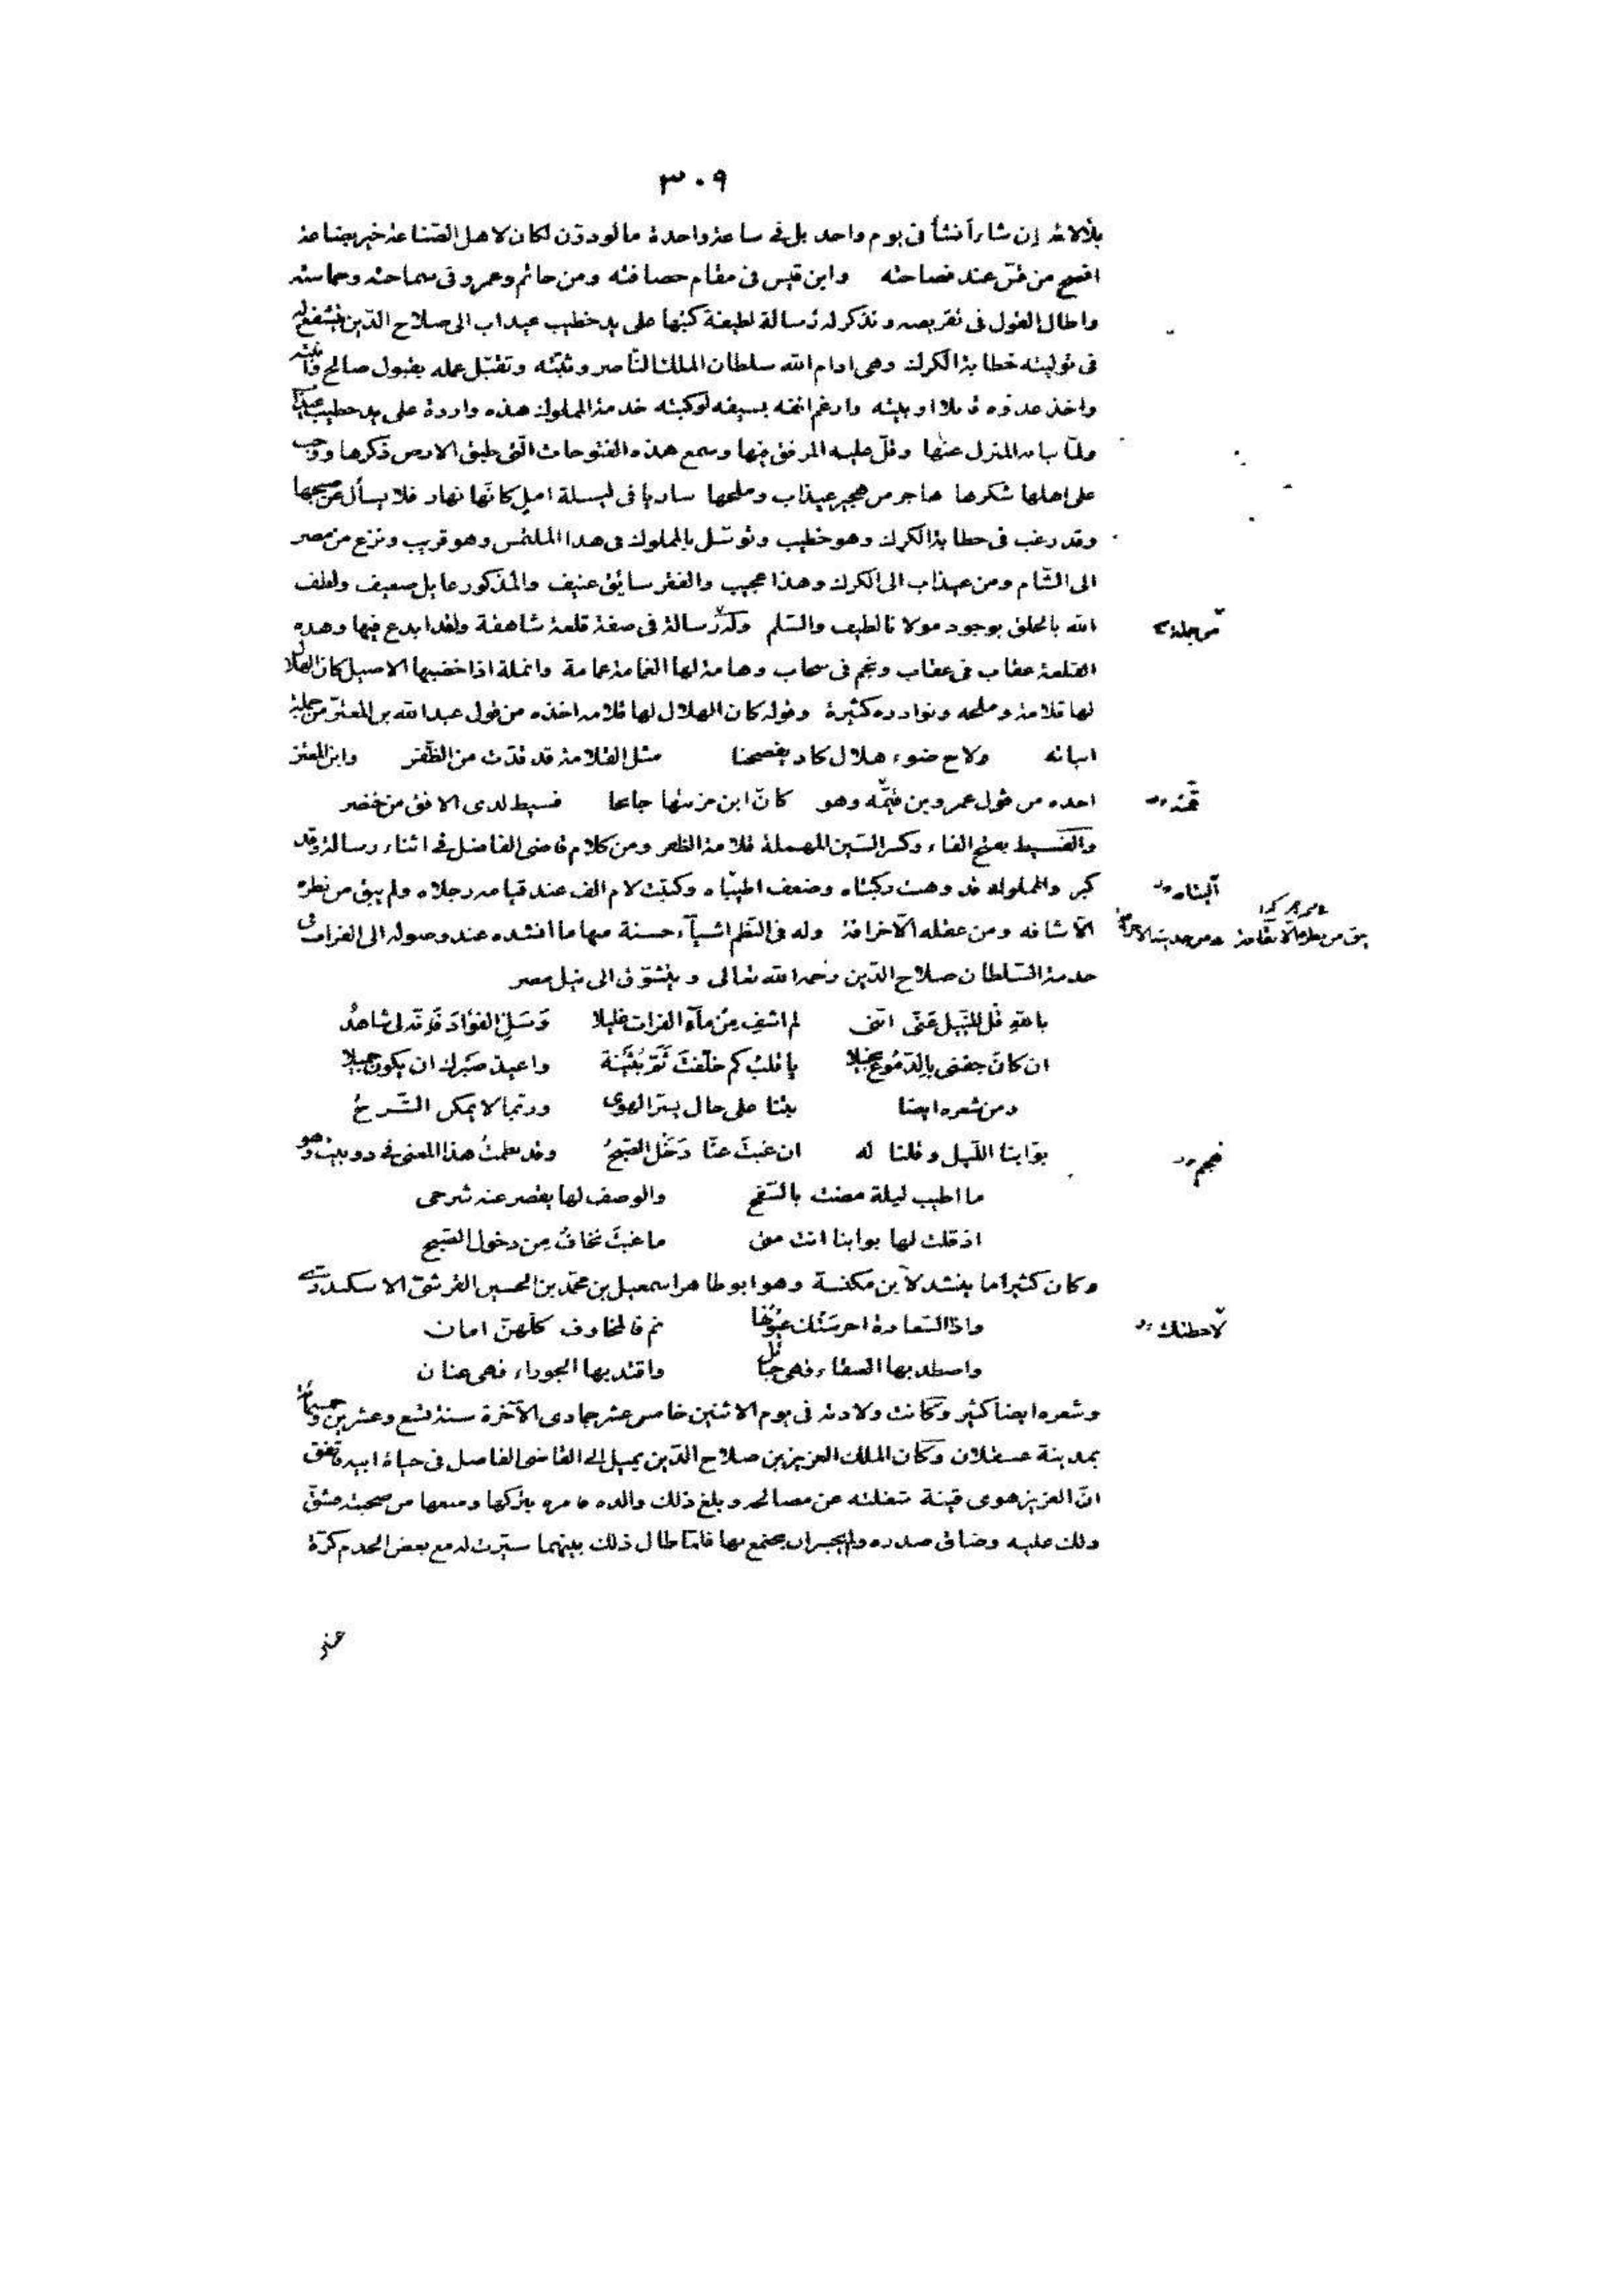 ٣٠٩
بآلائه إن شاء أنشأ في يوم واحد بل في ساعة واحدة ما لو دوّن لكان لاهل الصّناعة خير بضاعة
افصح من قسّ عند فصاحته وابن قيس في مقام حصافته ومن حاتم وعمرو في سماحته وحماسته
واطال القول في تقريضه ونذكر له رسالة لطيفة كتبها على يد خطيب عيذاب الى صلاح الدّين يتشفع له
في توليته خطابة الكرك وهي ادام الله سلطان الملك النّاصر وثبّته وتقبّل عمله بقبول صالح وأنبته
واخذ عدوّه قائلا او بيّته وارغم انفه بسيفه او كبته خدمة المملوك هذه واردة على يد خطيب عيذاب
ولمّا نبا به المنزل عنها وقلّ عليه المرفق فيها وسمع هذه الفتوحات الّتي طبق الارض ذكرها ووجب
على اهلها شكرها هاجر من هجير عيذاب وملحها ساريا في ليلة امل كلّها نهار فلا يسأل عن صبحها
وقد رغب في خطابة الكرك وهو خطيب وتوسّل بالمملوك في هذا الملتمس وهو قريب ونزع من مصر
الى الشّام ومن عيذاب الى الكرك وهذا عجيب والفقر سائق عنيف والمذكور عايل ضعيف ولطف
الله بالخلق بوجود مولانا لطيف والسّلم وله رسالة في صفة قلعة شاهقة ولقد ابدع فيها وهذه
القلعة عقاب في عقاب ونجم في سحاب وهامة لها الغمامة عمامة وانملة اذا خضبها الاصيل كان الهلال
لها قلامة وملحه ونوادره كثيرة وقوله كان الهلال لها قلامه اخذه من قول عبدالله بن المعتزّ من جملة
ابياته ولاح ضوء هلال كاد يفضحنا مثل القلامة قد قدّت من الظّفر وابن المعتز
اخذه من قول عمرو بن قمئة وهو كانّ ابن مزنتها جانحا فسيط لدى الافق من خنصر
والفسيط بفتح الفاء وكسر السّين المهملة قلامة الظفر ومن كلام قاضي الفاضل في اثناء رسالة وقد
كبر والمملوك قد وهت ركبتاه وضعف اطيباه وكتبت لام الف عند قيامه رجلاه ولم يبق من نظره
الّا شافه ومن عقله الّا خرافة وله في النّظم اشياء حسنة منها ما انشده عند وصوله الى الفرات في
خدمة السّلطان صلاح الدّين رحمه الله تعالى ويتشوّق الى نيل مصر
بالله قل للنّيل عنّي انّني لم اشف من ماء الفرات غليلا وسل الفؤاد فانّه لي شاهد
ان كان جفني بالدّموع بخيلا يا قلب كم خلّفت ثمّ بثينة واعيذ صبرك ان يكون جميلا
ومن شعره ايضا بتنا على حال يسرّ الهوى وربّما لا يمكن الشّرح
بوّابنا اللّيل وقلنا له ان غبت عنّا دخل الصّبح وقد نظمت هذا المعنى في دوبيت وهو
ما اطيب ليلة مضت بالسّفح والوصف لها يقصر عنه شرحي
اذ قلت لها بوابنا انت متى ما غبت نخاف من دخول الصّبح
وكان كثيرا ما ينشد لابن مكنسة وهو ابو طاهر اسمعيل بن محمّد بن الحسين القرشيّ الاسكندري
واذا السّعادة احرستك عيونها نم فالمخاوف كلّهنّ امان
واصطد بها العنقاء فهي حبائل واقتد بها الجوزاء فهي عنان
وشعره ايضا كثير وكانت ولادته في يوم الاثنين خامس عشر جمادى الآخرة سنة تسع وعشرين وخمسمائة
بمدينة عسقلان وكان الملك العزيز بن صلاح الدّين يميل الى القاضي الفاضل في حياة ابيه فاتفق
انّ العزيز هوى قينة شغلته عن مصالحه وبلغ ذلك والده فامره بتركها ومنعها من صحبته فشقّ
ذلك عليه وضاق صدره ولم يجسر ان يجتمع بها فلمّا طال ذلك بينهما سيّرت له مع بعض الخدم كرة
من جملة
قمئة
لاحظتك
عنبر